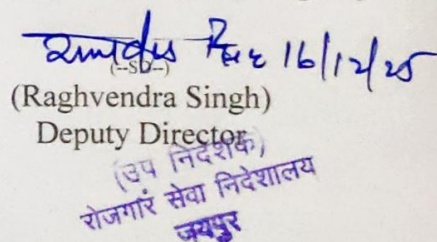 16/12/25
(--SD--)
(Raghvendra Singh)
Deputy Director
(उप निदेशक)
रोजगार सेवा निदेशालय
जयपुर